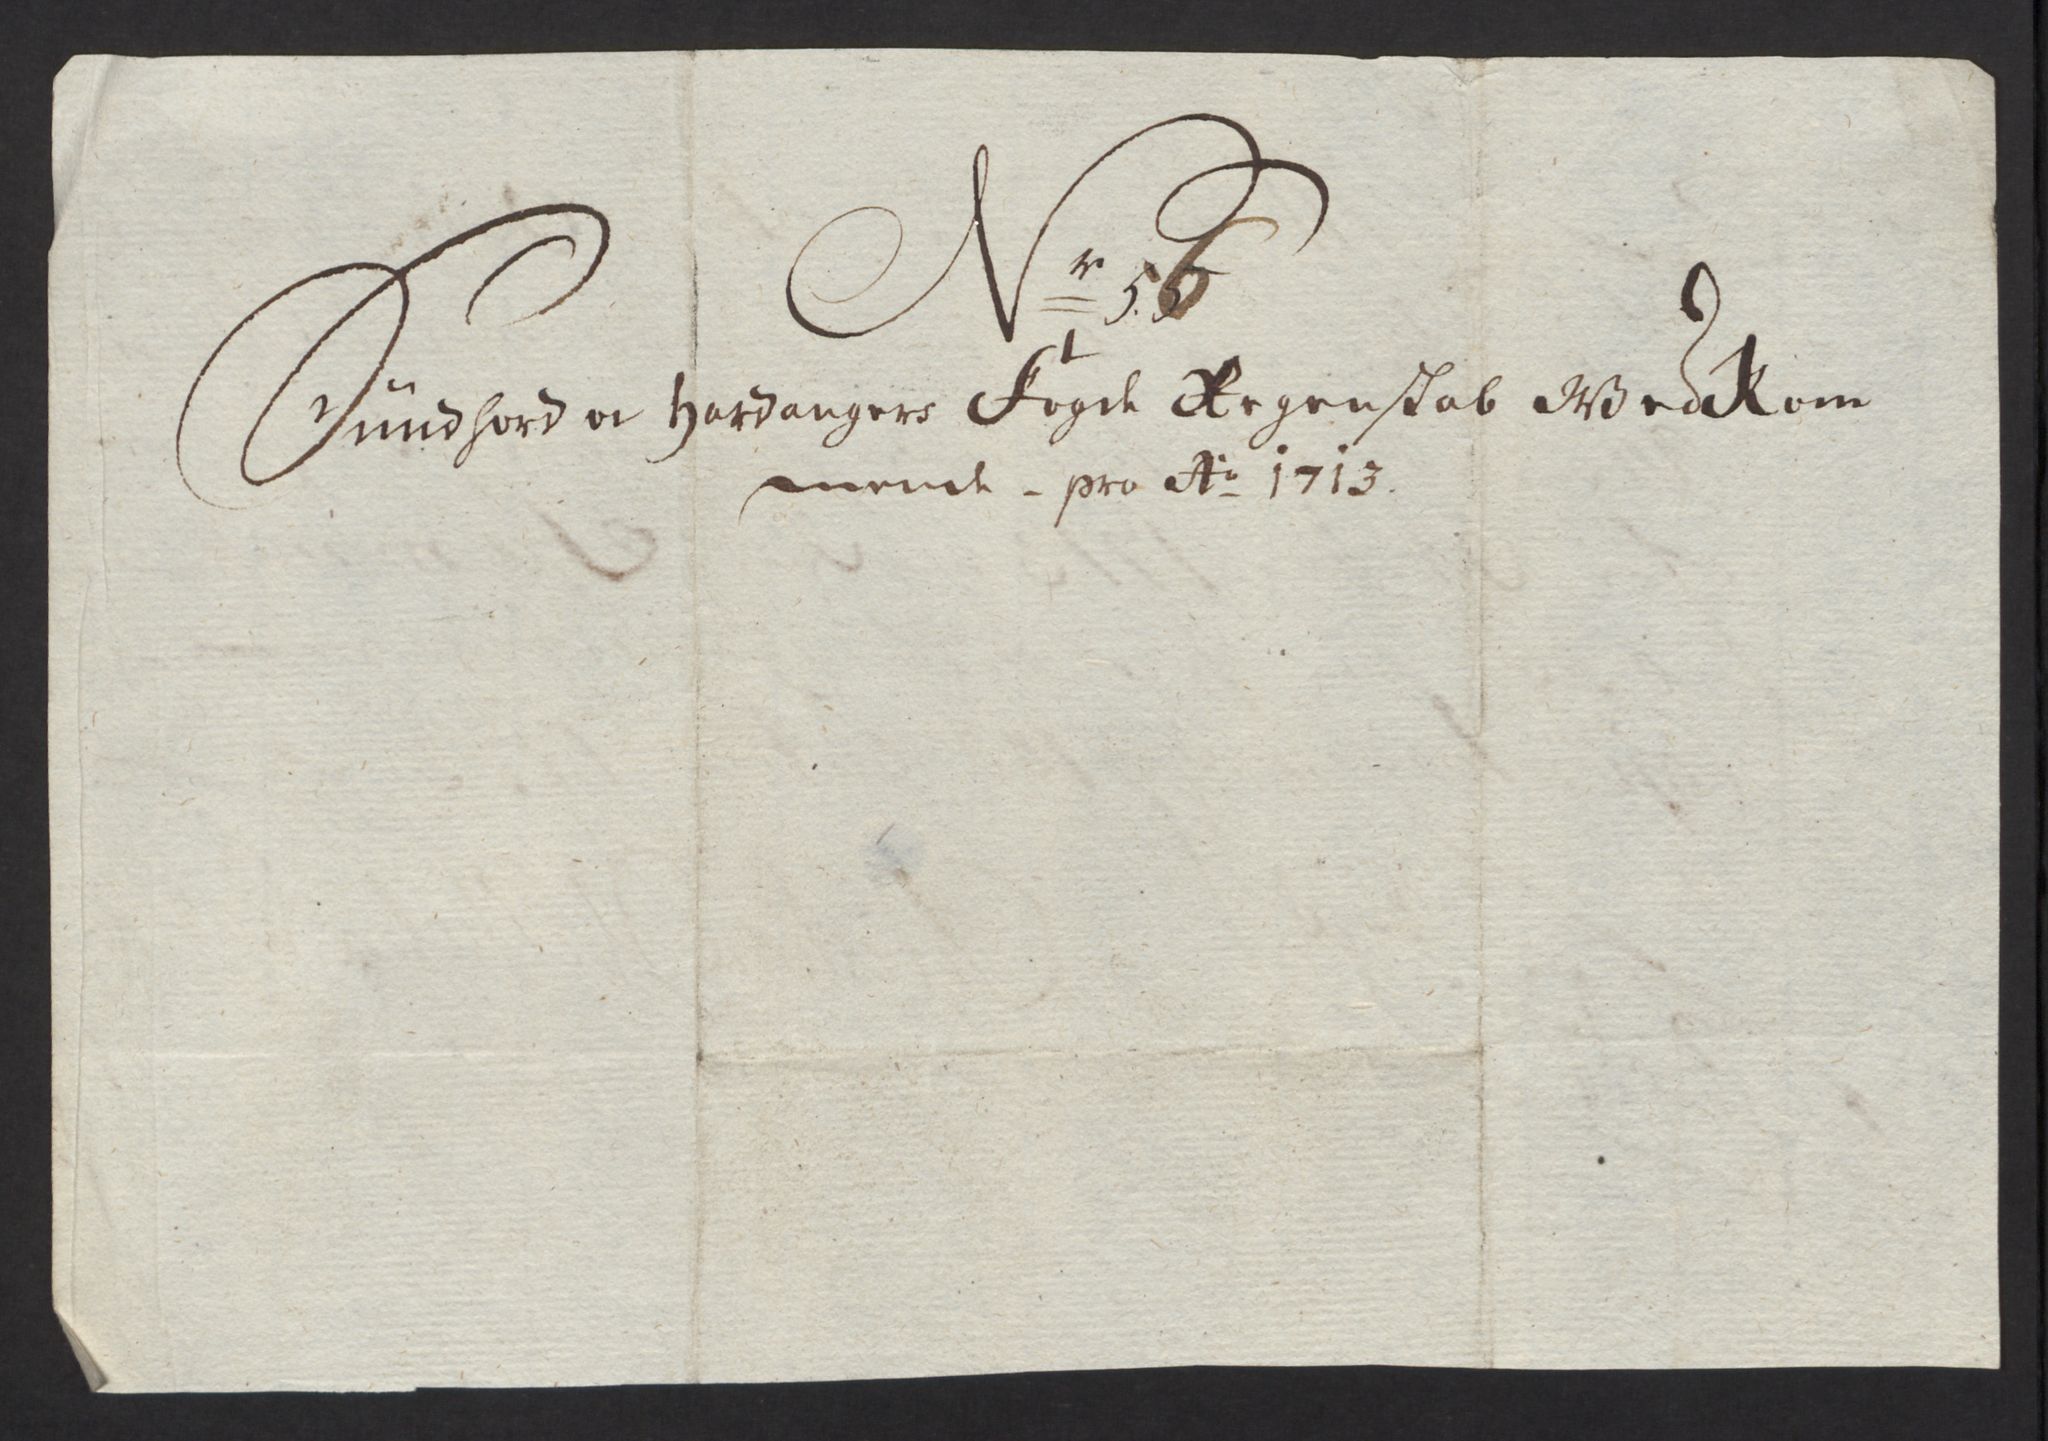 Nr 56
Sundhord oc Hardangers Fogde Regenskab Wed Kom
mende - pro Ao 1713.